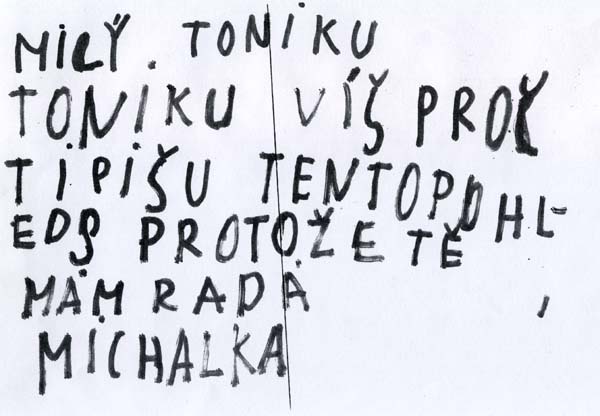 MILÝ. TONIKU
TONIKU VÍŠ PROČ
TI PIŠU TENTOPOHL-
EDS PROTOŽE TĚ
MÁM RADA
MICHALKA